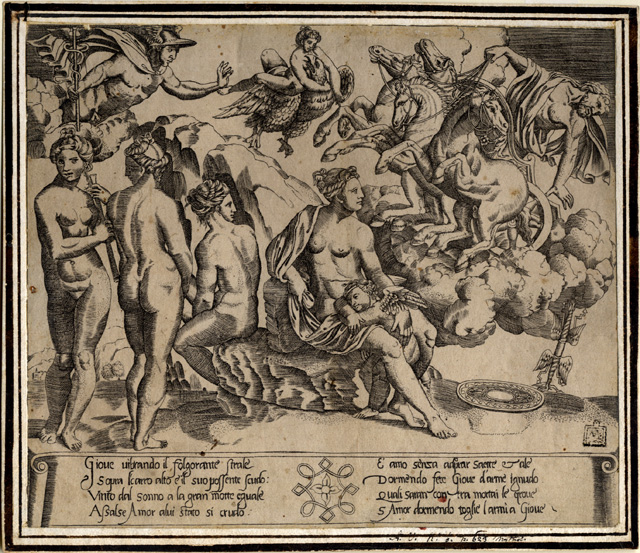 Gioue uibrando il folgorante strale
E sopra il carro alto e il suo possente scudo:
Vinto dal sonno a la gran morte eguale
Assalse Amor a lui stato si crudo
E amo senza aspirar saette
Dormendo fece Gioue d'arme ignudo
quali saran con tra mortai le proue
S Amor dormendo toglie l'armi a Gioue